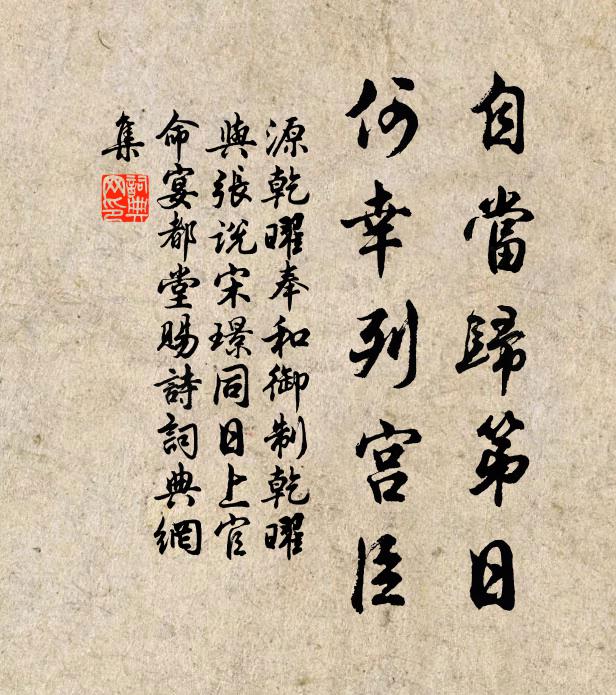 自當歸第日
何幸列宮臣
源乾曜奉和御制乾曜
與張説宋璟同日上官
命宴都堂賜詩詞典網
集
詞典
网印